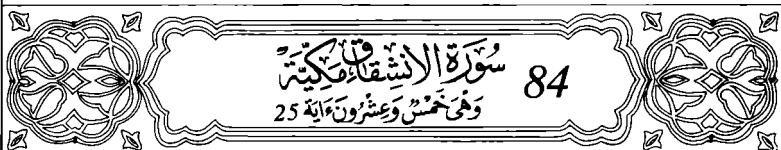 سُورَةُ الْاِنْشِقَاقِ مَكِّيَّةٌ 84
وَهْىَ خَمْسٌ وَعِشْرُونَ ءَايَةً 25